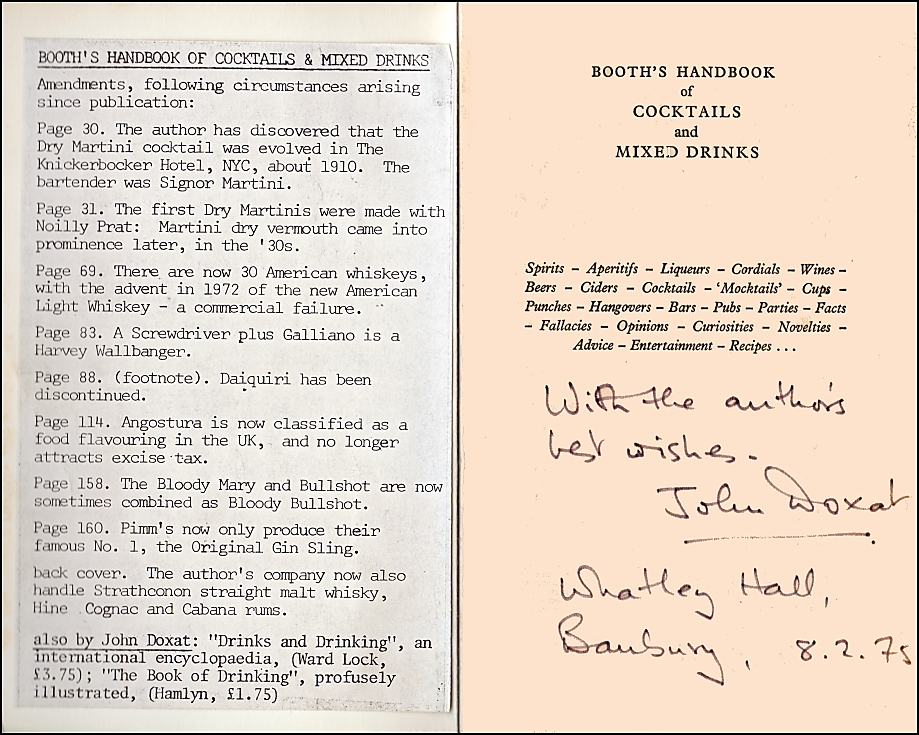 BOOTH'S HANDBOOK OF COCKTAILS & MIXED DRINKS
Amendments, following circumstances arising
since publication:
Page 30. The author has discovered that the
Dry Martini cocktail was evolved in The
Knickerbocker Hotel, NYC, about 1910. The
bartender was Signor Martini.
Page 31. The first Dry Martinis were made with
Noilly Prat: Martini dry vermouth came into
prominence later, in the '30s.
Page 69. There are now 30 American whiskeys,
with the advent in 1972 of the new American
Light Whiskey - a commercial failure.
Page 83. A Screwdriver plus Galliano is a
Harvey Wallbanger.
Page 88. (footnote). Daiquiri has been
discontinued.
Page 114. Angostura is now classified as a
food flavouring in the UK, and no longer
attracts excise tax.
Page 158. The Bloody Mary and Bullshot are now
sometimes combined as Bloody Bullshot.
Page 160. Pimm's now only produce their
famous No. 1, the Original Gin Sling.
back cover. The author's company now also
handle Strathconon straight malt whisky,
Hine Cognac and Cabana rums.
also by John Doxat: "Drinks and Drinking", an
international encyclopaedia, (Ward Lock,
£3.75); "The Book of Drinking", profusely
illustrated, (Hamlyn, £1.75)
BOOTH'S HANDBOOK
of
COCKTAILS
and
MIXED DRINKS
Spirits – Aperitifs – Liqueurs – Cordials – Wines –
Beers – Ciders – Cocktails – 'Mocktails' – Cups –
Punches – Hangovers – Bars – Pubs – Parties – Facts
– Fallacies – Opinions – Curiosities – Novelties –
Advice – Entertainment – Recipes . . .
With the author's
best wishes.
John Doxat
Whatley Hall,
Banbury, 8.2.75